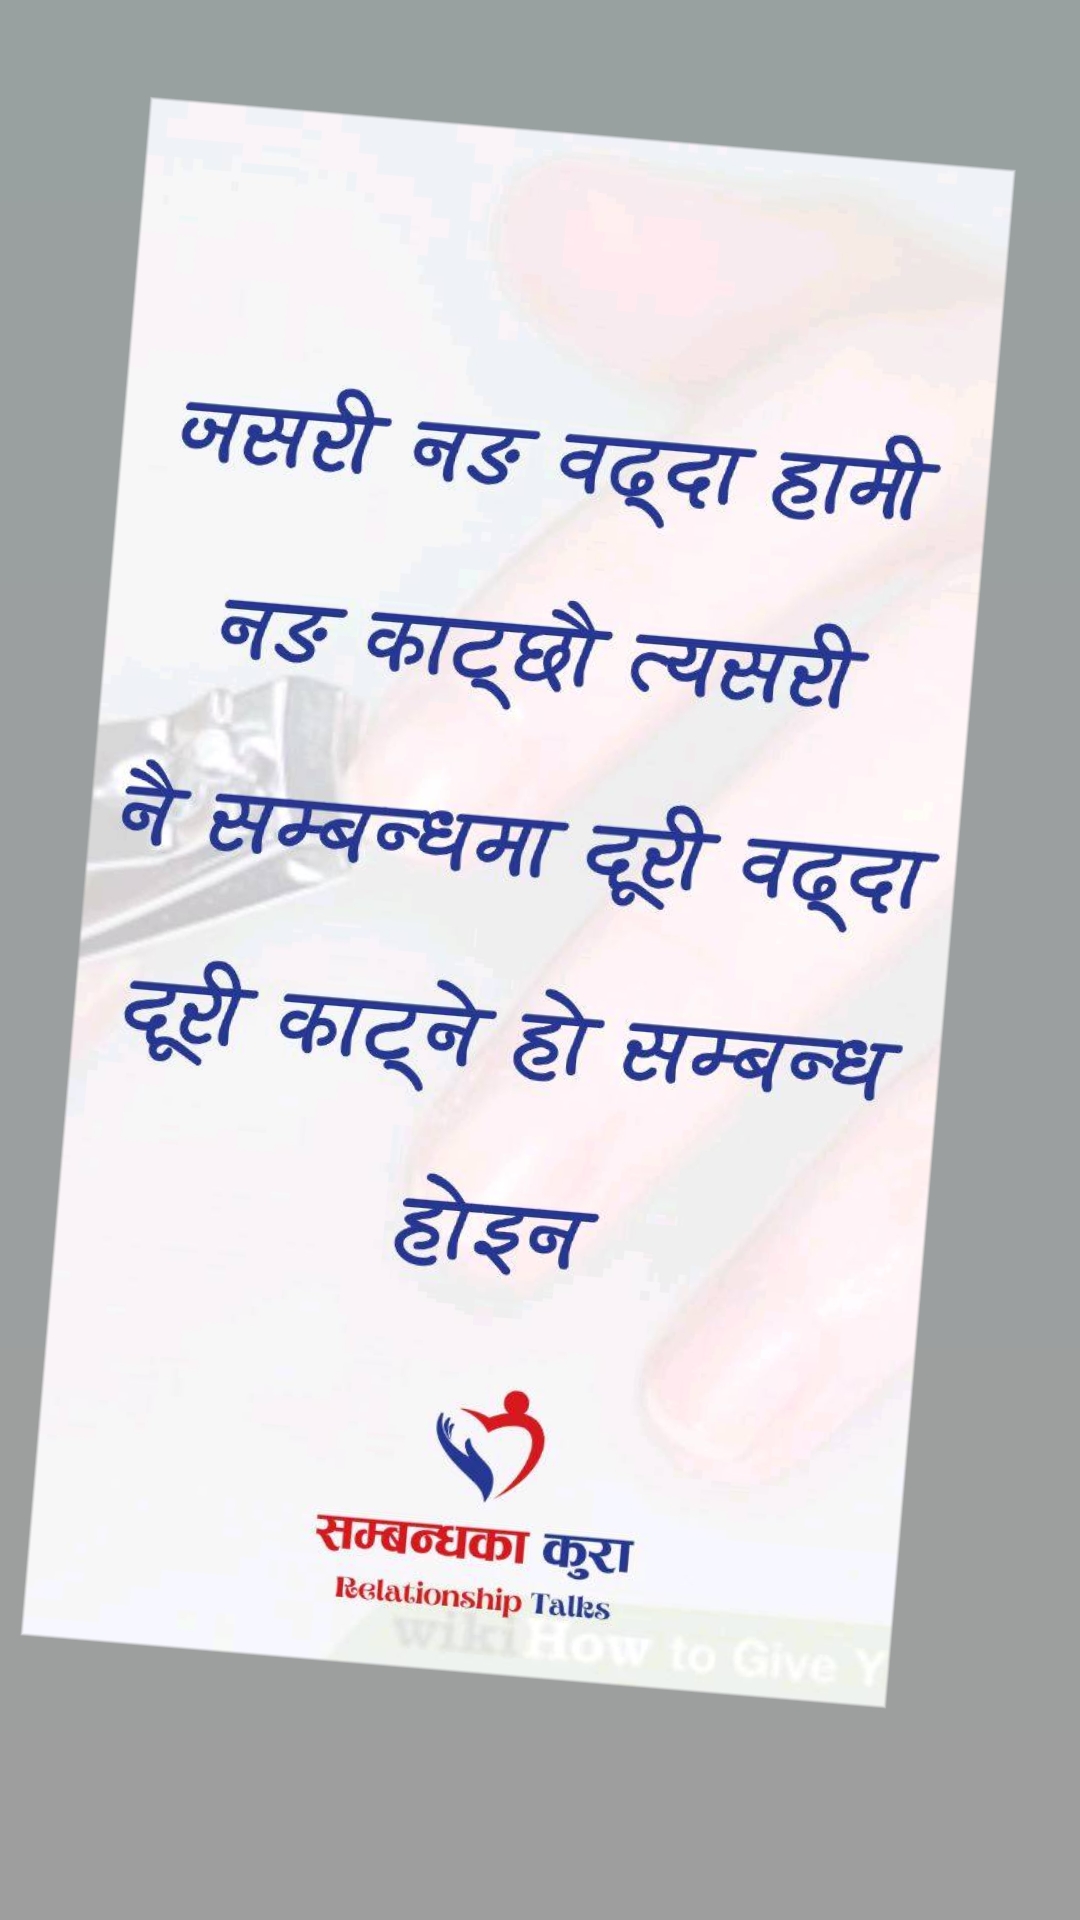 जसरी नङ वढ्दा हामी
नङ काट्छौ त्यसरी
नै सम्बन्धमा दूरी वढ्दा
दूरी काट्ने हो सम्बन्ध
होइन
सम्बन्धका कुरा
Relationship Talks
wikiHow to Give Y